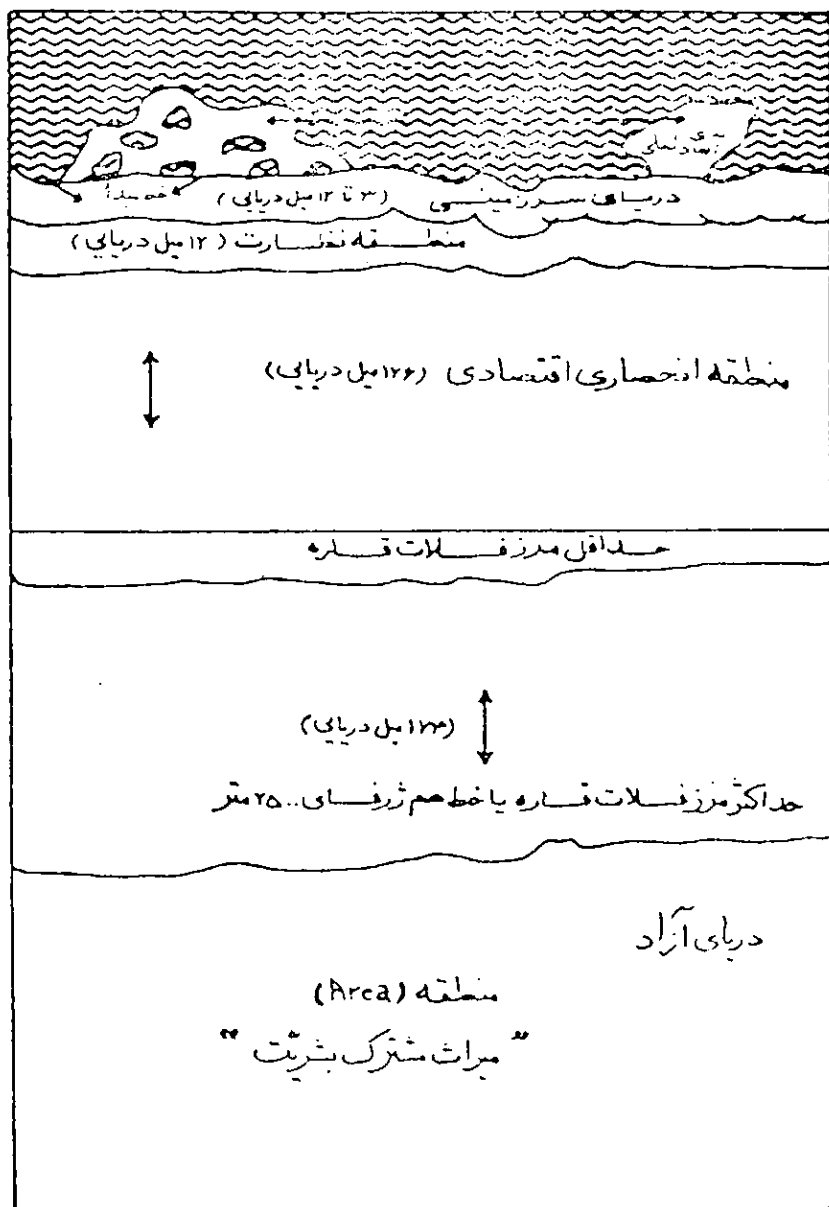 خط مبدأ
دریای سرزمینی (۳ تا ۱۲ میل دریایی)
منطقه نظارت (۱۲ میل دریایی)
منطقه انحصاری اقتصادی (۱۷۶ میل دریایی)
حداقل مرز فلات قاره
(۱۷۳ میل دریایی)
حداکثر مرز فلات قاره یا خط هم ژرفای ۲۵۰۰ متر
دریای آزاد
منطقه (Area)
"میراث مشترک بشریّت"